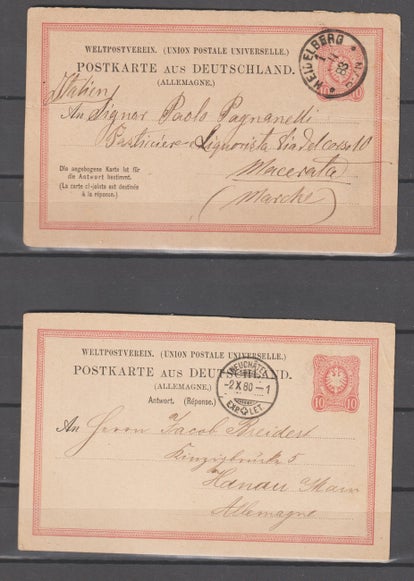 WELTPOSTVEREIN. (UNION POSTALE UNIVERSELLE.)
POSTKARTE AUS DEUTSCHLAND.
(ALLEMAGNE.)
HEIDELBERG
83
10
Italien
An Signor Paolo Pagnanelli
Pasticciere e Liquorista Via del corso 10
Macerata
(Marche)
Die angebogene Karte ist für
die Antwort bestimmt.
(La carte ci-jointe est destinée
à la réponse.)
WELTPOSTVEREIN. (UNION POSTALE UNIVERSELLE.)
POSTKARTE AUS DEUTSCHLAND.
(ALLEMAGNE.)
Antwort. (Réponse.)
-2 X 80-1
EXP LET.
10 10
An Herrn Jacob Breidest
Kinzigbrücke 5
Hanau Main
Allemagne